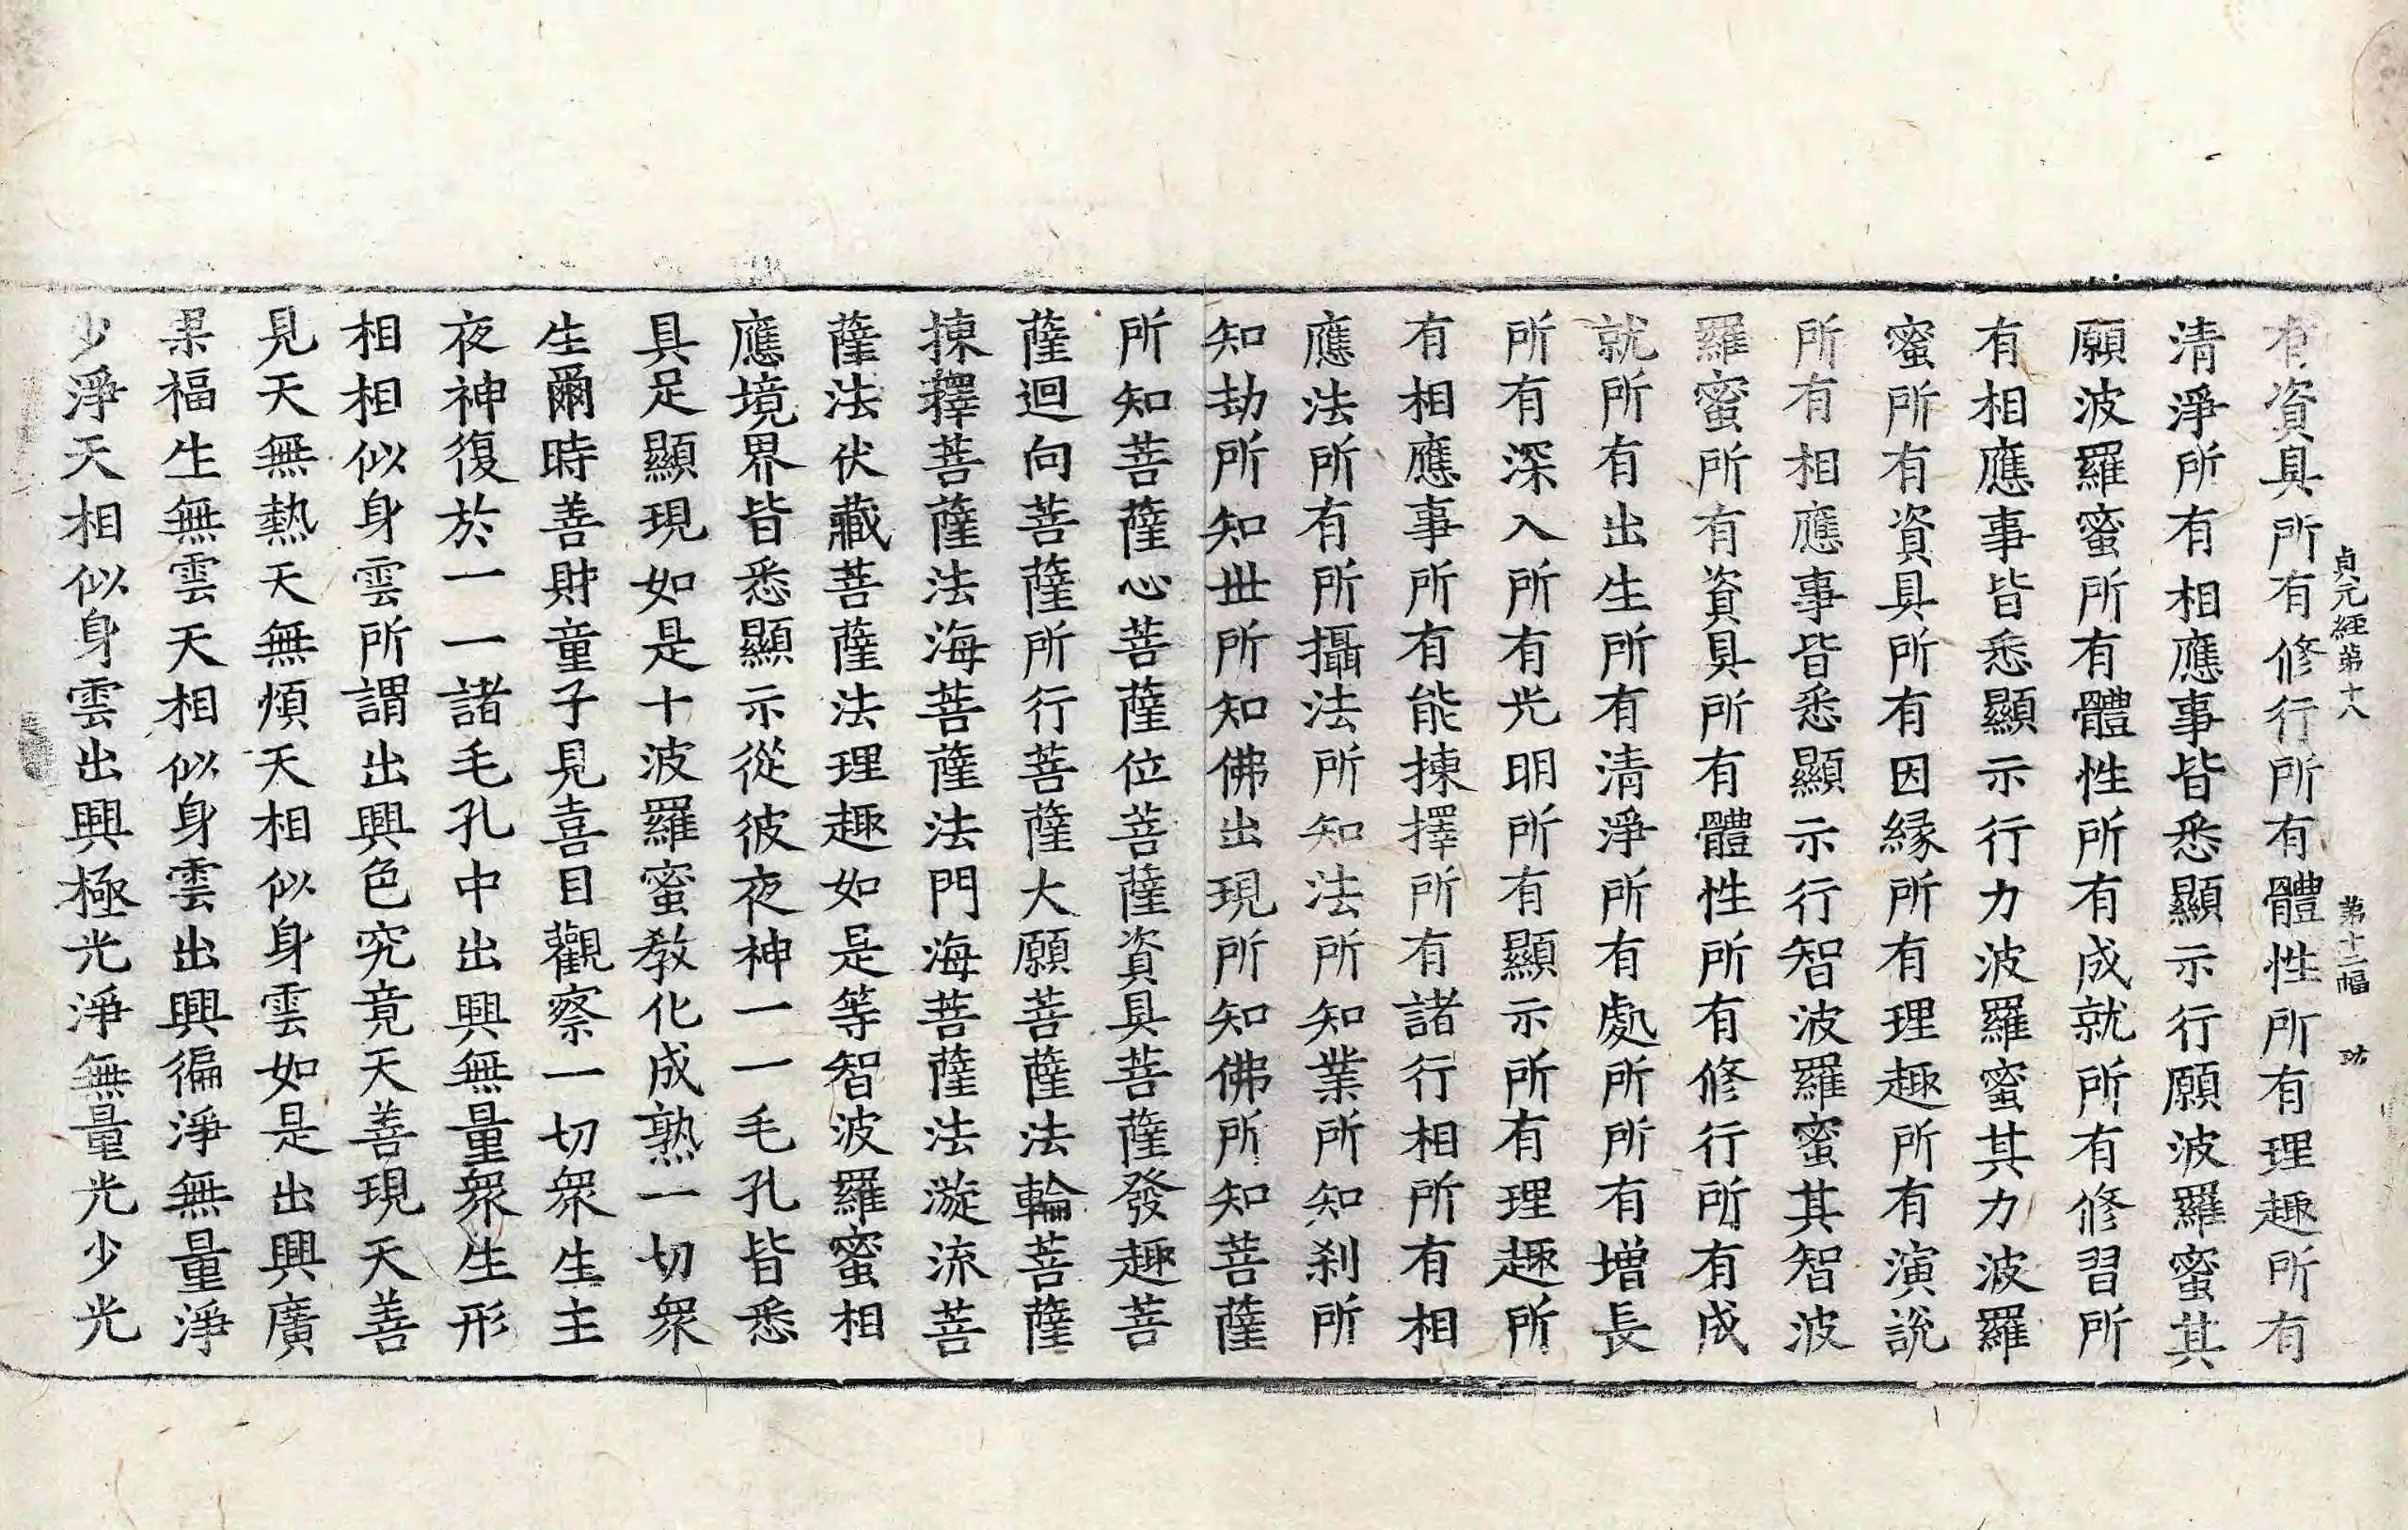 貞元経第十八　第十二幅
有資具所有修行所有體性所有理趣所有
清淨所有相應事皆悉顯示行願波羅蜜其
願波羅蜜所有體性所有成就所有修習所
有相應事皆悉顯示行力波羅蜜其力波羅
蜜所有資具所有因縁所有理趣所有演說
所有相應事皆悉顯示行智波羅蜜其智波
羅蜜所有資具所有體性所有修行所有成
就所有出生所有清淨所有處所所有增長
所有深入所有光明所有顯示所有理趣所
有相應事所有能揀擇所有諸行相所有相
應法所有所攝法所知法所知業所知刹所
知劫所知世所知佛出現所知佛所知菩薩
所知菩薩心菩薩位菩薩資具菩薩發趣菩
薩迴向菩薩所行菩薩大願菩薩法輪菩薩
揀擇菩薩法海菩薩法門海菩薩法漩流菩
薩法伏藏菩薩法理趣如是等智波羅蜜相
應境界皆悉顯示從彼夜神一一毛孔皆悉
具足顯現如是十波羅蜜教化成熟一切衆
生爾時善財童子見喜目觀察一切衆生主
夜神復於一一諸毛孔中出興無量衆生形
相相似身雲所謂出興色究竟天善現天善
見天無熱天無煩天相似身雲如是出興廣
果福生無雲天相似身雲出興徧淨無量淨
少淨天相似身雲出興極光淨無量光少光